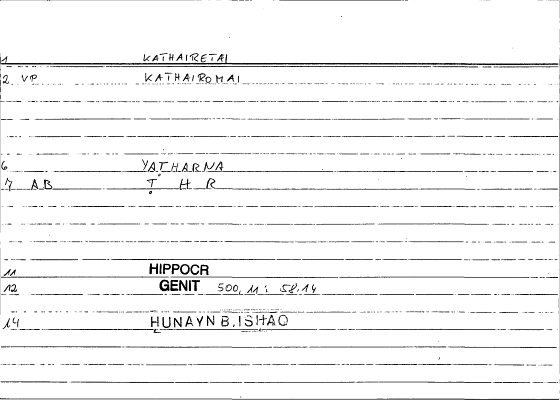 1 KATHAIRETAI
2 VP KATHAIROMAI
6 YAṬHARNA
7 AB Ṭ H R
11 HIPPOCR
12 GENIT 500, 11 : 58,14
14 ḪUNAYN B. ISHAQ